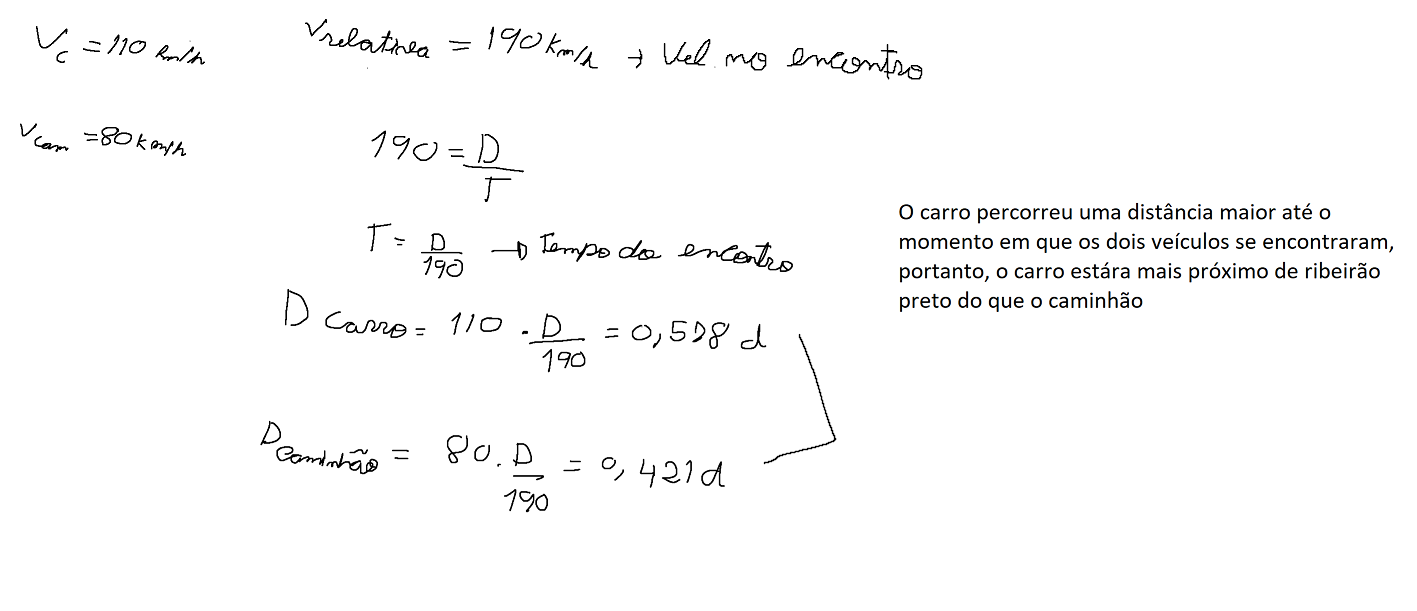 Vc = 110 km/h
Vrelativa = 190 km/h → Vel no encontro
Vcam = 80 km/h
190 = D/T
T = D/190 → Tempo do encontro
D carro = 110 . D/190 = 0,578 d
D caminhão = 80 . D/190 = 0,421 d
O carro percorreu uma distância maior até o
momento em que os dois veículos se encontraram,
portanto, o carro estára mais próximo de ribeirão
preto do que o caminhão